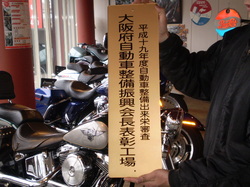 平成十九年度自動車整備出来栄審査
大阪府自動車整備振興会長表彰工場